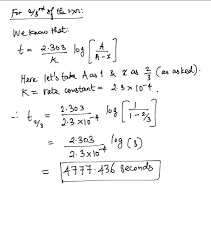 For 2/3rd of the rxn:
We know that:
t = 2.303/K log [A/A-x]
Here let's take A as 1 & x as 2/3 (as asked).
K = rate constant = 2.3 x 10^-4.
∴ t2/3 = 2.303/2.3x10^-4 log [1/1-2/3]
= 2.303/2.3x10^-4 log (3)
= 4777.436 seconds